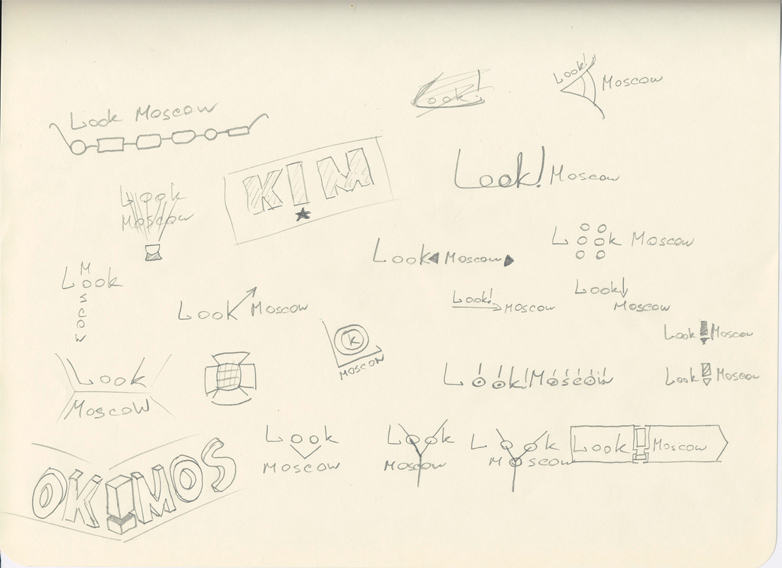 Look!
Look!
Moscow
Look Moscow
KIM
Look! Moscow
Look
Moscow
Look Moscow
Look Moscow
Look
Moscow
Look Moscow
Look! Moscow
Look
Moscow
Look Moscow
K
Moscow
Look! Moscow
Look Moscow
Look
Moscow
Look! Moscow
OK!MOS
Look
Moscow
Look
Moscow
Look
Moscow
Look Moscow